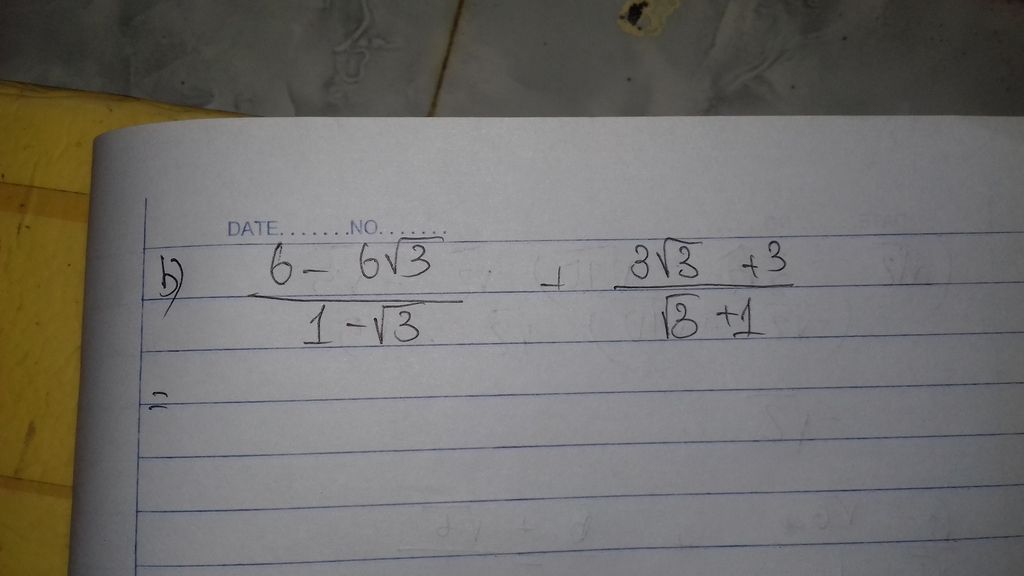 DATE.......NO.......
b) 6 - 6√3 + 3√3 + 3
1 - √3 √3 + 1
=